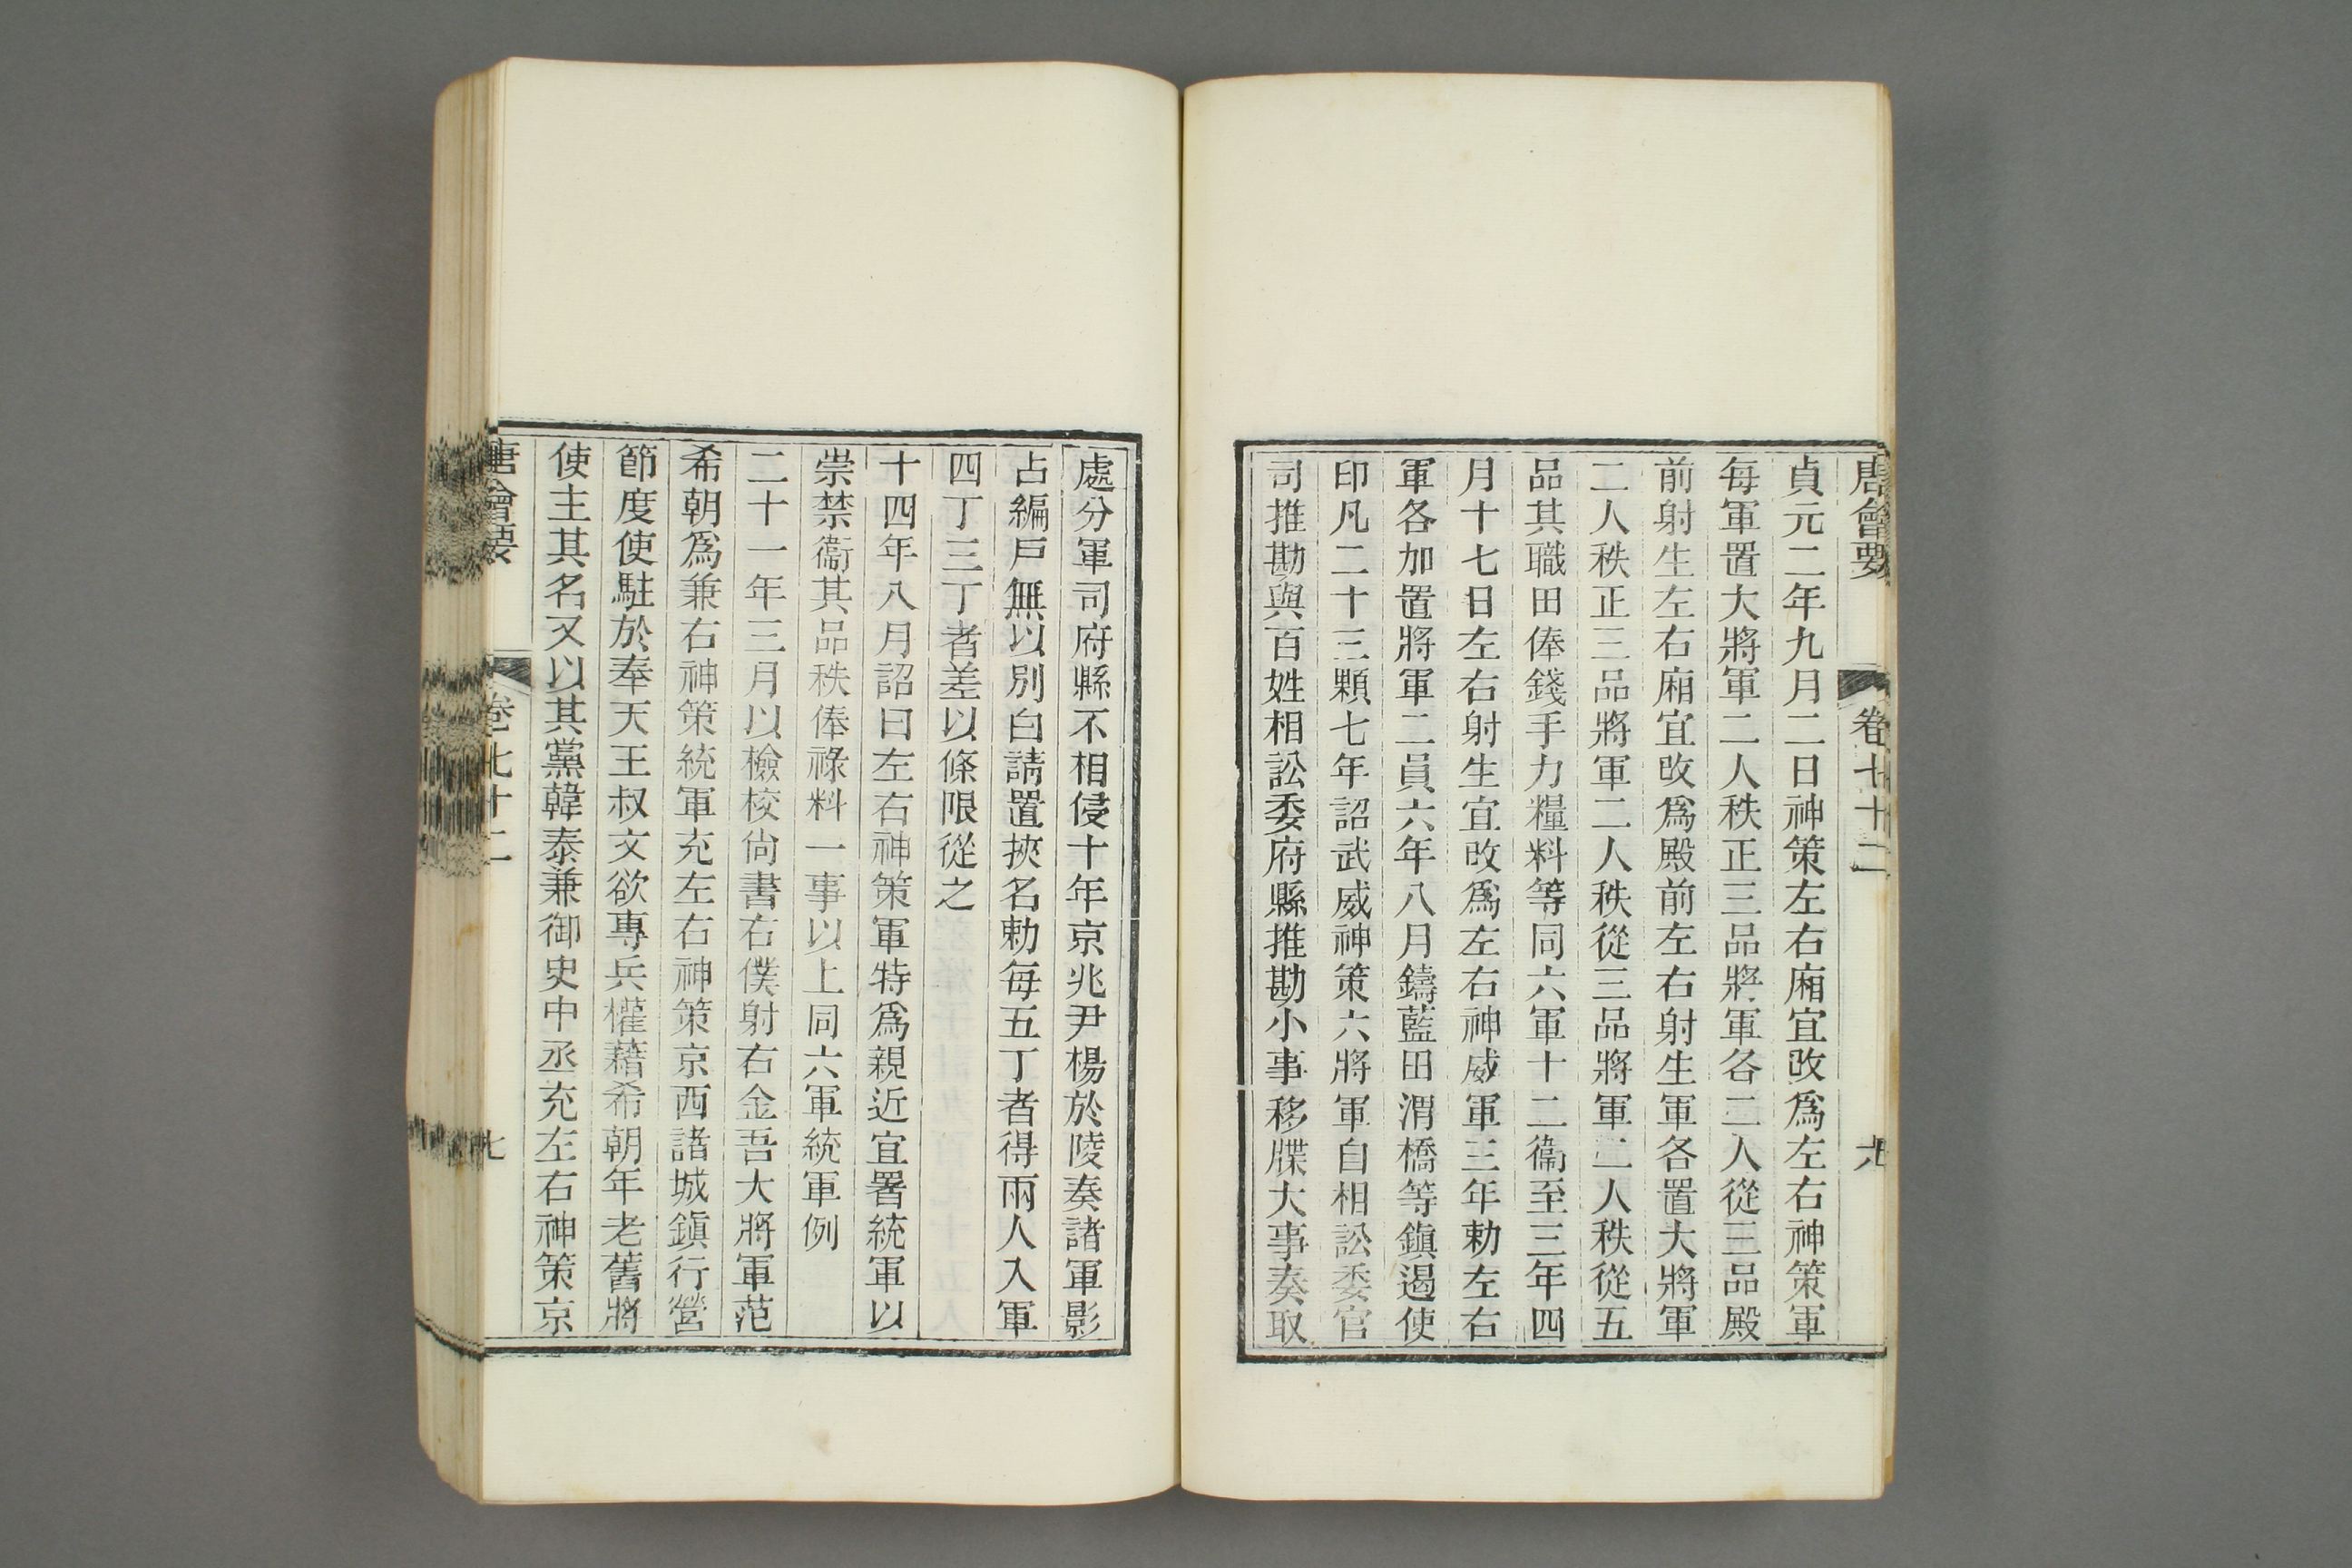 唐會要 卷七十二 六
貞元二年九月二日神策左右廂宜改爲左右神策軍
每軍置大將軍二人秩正三品將軍各二人從三品殿
前射生左右廂宜改爲殿前左右射生軍各置大將軍
二人秩正三品將軍二人秩從三品將軍二人秩從五
品其職田俸錢手力糧料等同六軍十二衞至三年四
月十七日左右射生宜改爲左右神威軍三年勅左右
軍各加置將軍二員六年八月鑄藍田渭橋等鎭遏使
印凡二十三顆七年詔武威神策六將軍自相訟委官
司推勘與百姓相訟委府縣推勘小事移牒大事奏取
處分軍司府縣不相侵十年京兆尹楊於陵奏諸軍影
占編戸無以別白請置挾名勅每五丁者得兩人入軍
四丁三丁者差以條限從之
十四年八月詔曰左右神策軍特爲親近宜署統軍以
崇禁衞其品秩俸祿料一事以上同六軍統軍例
二十一年三月以檢校尙書右僕射右金吾大將軍范
希朝爲兼右神策統軍充左右神策京西諸城鎭行營
節度使駐於奉天王叔文欲專兵權藉希朝年老舊將
使主其名又以其黨韓泰兼御史中丞充左右神策京
唐會要 卷七十二 七